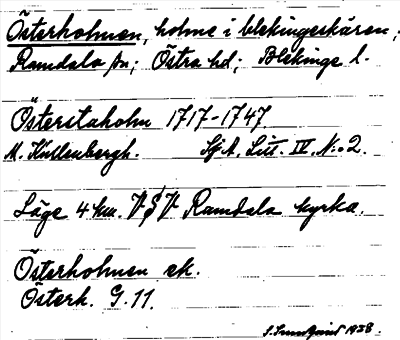 Österholmen, holme i blekingeskären;
Ramdala sn; Östra hd; Blekinge l.
Österstaholm 1717-1747
M. Küllenbergh. SjA. Litt. IV. N:o 2.
Läge 4 km. V§V Ramdala kyrka.
Österholmen ek.
Österh. G. 11.
1938